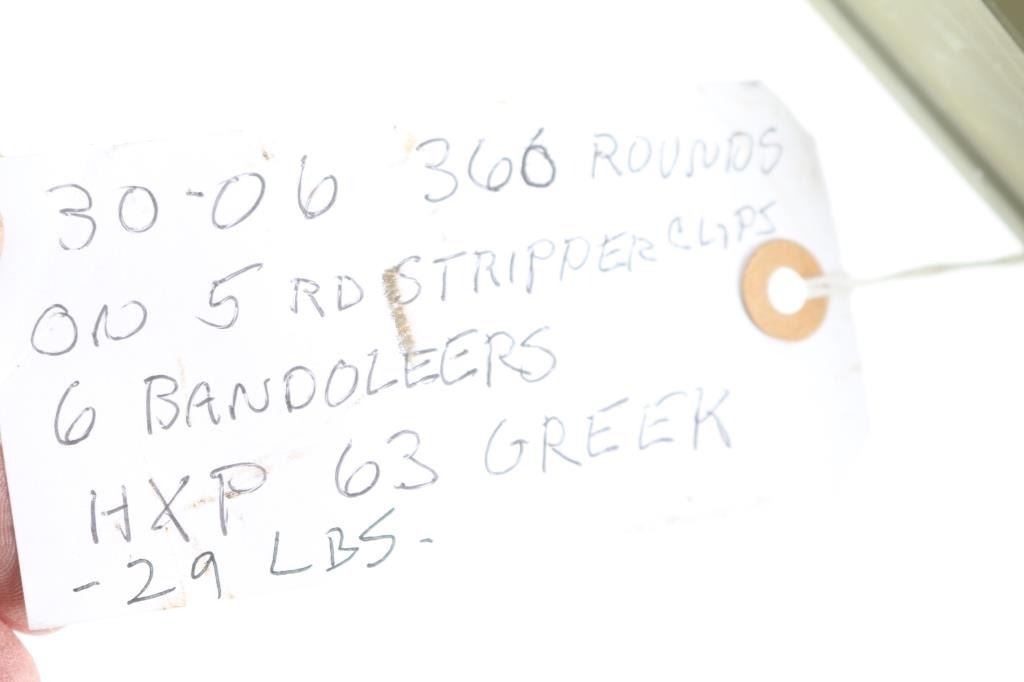 30-06 360 ROUNDS
ON 5 RD STRIPPER CLIPS
6 BANDOLEERS
HXP 63 GREEK
-29 LBS.